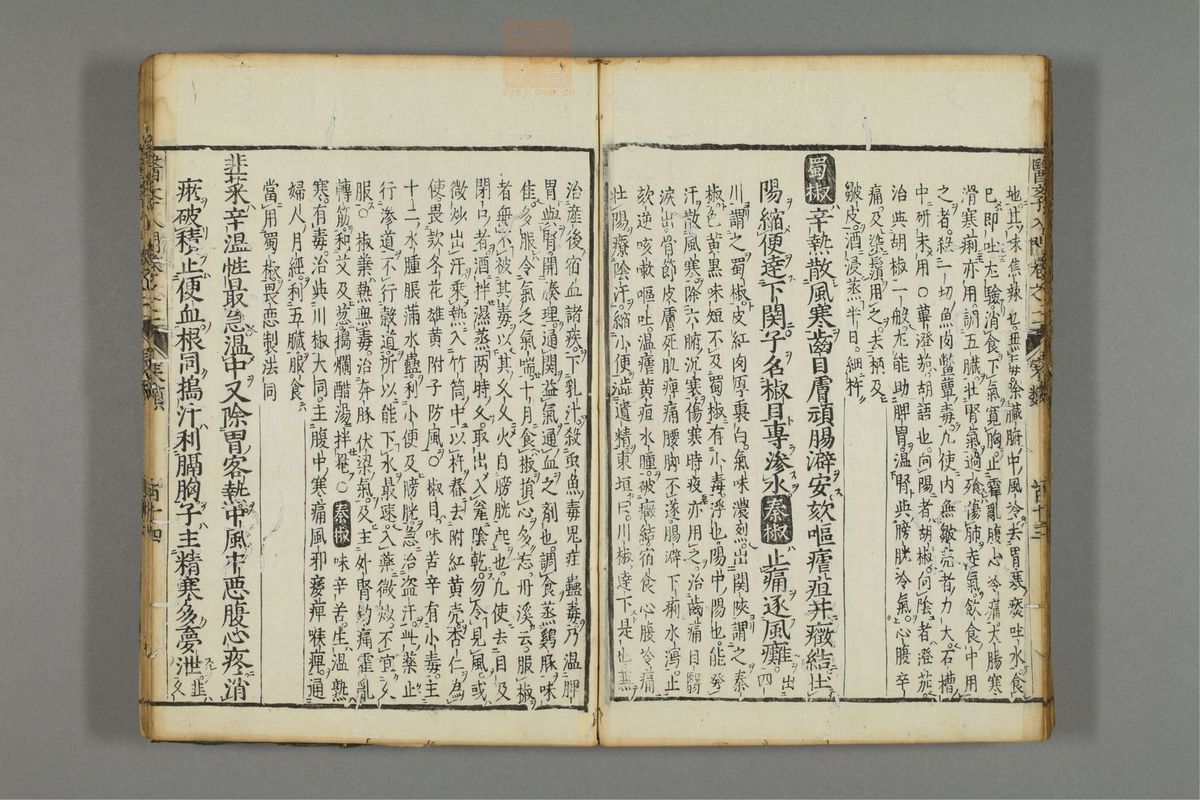 地其味焦辣也無毒療臟腑中風冷去胃寒痰吐水食
已即吐尤驗消食下氣寬胸止霍亂腹心冷痛大腸寒
滑寒痢亦用調五臟壯腎氣過殽傷肺走氣飲食中用
之者殺一切魚肉鱉蕈毒凡使內無皺殼者力大石槽
中研末用○蓽澄茄胡語也向陽者胡椒向陰者澄茄
治與胡椒一般尤能助脾胃溫腎與膀胱冷氣心腹卒
痛及染鬚用之去柄及
皺皮酒浸蒸半日細杵
蜀椒辛熱散風寒齒目膚頑腸澼安欬嘔瘧疸并癥結壯
陽縮便達下関子名椒目專滲水秦椒止痛逐風癰出四
川謂之蜀椒皮紅肉厚裏白氣味濃烈出関陝謂之秦
椒色黃黑味短不及蜀椒有小毒浮也陽中陽也能發
汗散風寒除六腑沉寒傷寒時疫亦用之治齒痛目翳
淚出骨節皮膚死肌痺痛腰脚不遂腸澼下痢水瀉止
欬逆咳嗽嘔吐溫瘧黃疸水腫破癥結宿食心腹冷痛
壯陽療陰汗縮小便澁遺精東垣曰川椒達下是也兼
治產後宿血諸疾下乳汁殺虫魚毒鬼疰蠱毒乃溫脾
胃與腎開湊理通関益氣通血之剤也調食蒸鷄豚味
佳多服令氣乏氣喘十月食椒損心多忘丹溪云服椒
者無不被其毒以其久久火自膀胱起也凡使去目及
閉口者酒拌濕蒸兩時久取出入瓷陰乾勿令見風或
微炒出汗乘熱入竹筒中以杵舂去附紅黃壳杏仁為
使畏欵冬花雄黃附子防風○椒目味苦辛有小毒主
十二水腫脹滿水蠱利小便及膀胱急治盜汗此藥止
行滲道不行穀道所以能下水最速入藥微炒不宜久
服○椒葉熱無毒治奔豚伏梁氣及主外腎釣痛霍亂
轉筋和艾及葱搗爛醋湯拌罨○秦椒味辛苦生溫熟
寒有毒治與川椒大同主腹中寒痛風邪痿痺喉痺通
婦人月經利五臟服食
當用蜀椒畏惡製法同
韭菜辛温性最急温中又除胃客熱中風中惡腹心疼消
瘀破積止便血根同搗汁利膈胸子主精寒多夢泄韭久